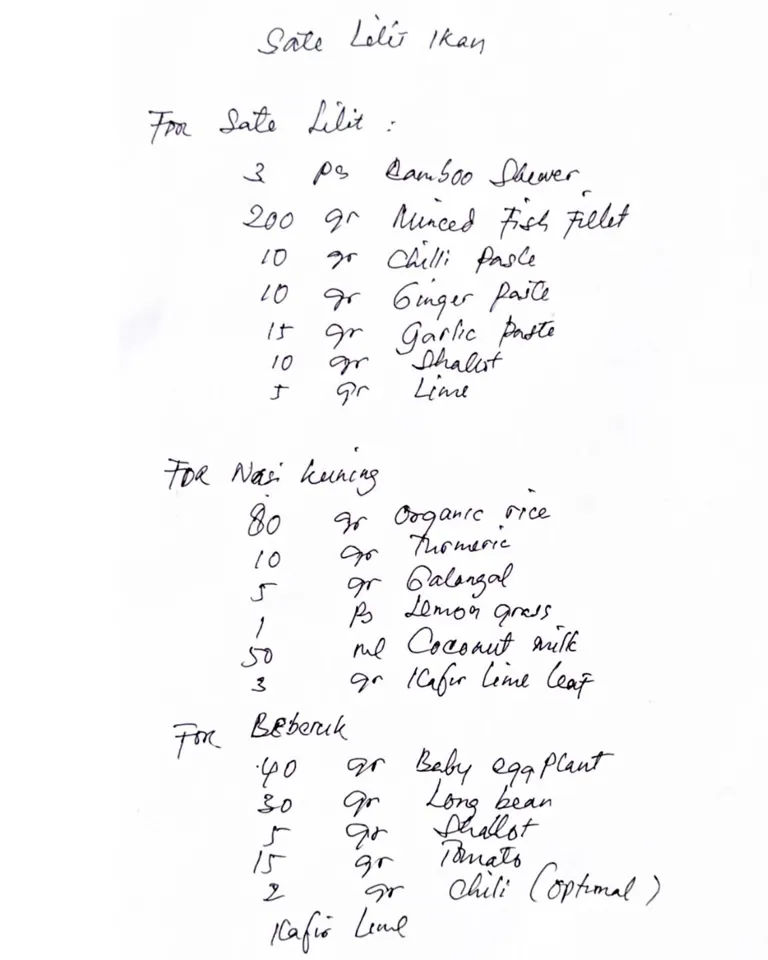 Sate Lilit Ikan
For Sate Lilit :
3 ps Bamboo Skewer
200 gr Minced Fish Fillet
10 gr Chilli Paste
10 gr Ginger Paste
15 gr Garlic Paste
10 gr Shallot
5 gr Lime
For Nasi kuning
80 gr Organic rice
10 gr Turmeric
5 gr Galangal
1 Ps Lemon grass
50 ml Coconut milk
3 gr Kafir Lime Leaf
For Beberuk
40 gr Baby eggplant
30 gr Long bean
5 gr Shallot
15 gr Tomato
2 gr Chili (optional)
Kafir Lime